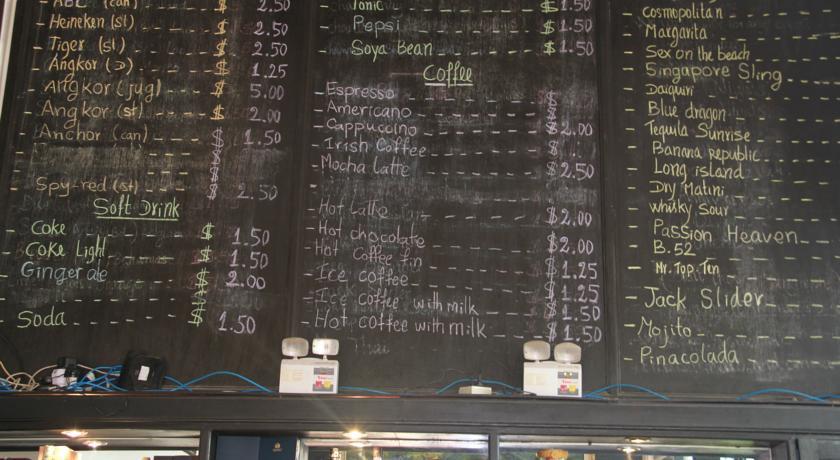 ABC (can) - - - $ 2.50
Heineken (st) - - - $ 2.50
- Tiger (st) - - - $ 2.50
- Angkor - - - $ 1.25
- Angkor (jug) - - - $ 5.00
Angkor (st) - - - $ 2.00
- Anchor (can) - - - $ 1.50
- Spy-red (st) - - - $ 2.50
Soft Drink
- Coke - - - $ 1.50
- Coke Light - - - $ 1.50
- Ginger ale - - - $ 2.00
Soda - - - $ 1.50
Tonic - - - $ 1.50
- Pepsi - - - $ 1.50
- Soya Bean - - - $ 1.50
Coffee
- Espresso - - - $
- Americano - - - $
- Cappuccino - - - $ 2.00
- Irish Coffee - - - $
- Mocha Latte - - - $ 2.50
- Hot Latte - - - $ 2.00
- Hot chocolate - - - $ 2.00
- Hot Coffee - - - $ 1.25
- Ice coffee - - - $ 1.25
- Ice coffee with milk - - - $ 1.50
- Hot coffee with milk - - - $ 1.50
- Cosmopolitan
- Margarita
- Sex on the beach
- Singapore Sling
- Daiquiri
- Blue dragon
- Tequila Sunrise
- Banana republic
- Long island
- Dry Matini
- whisky Sour
- Passion Heaven
- B.52
- Mr. Top. Ten
- Jack Slider
- Mojito
- Pinacolada